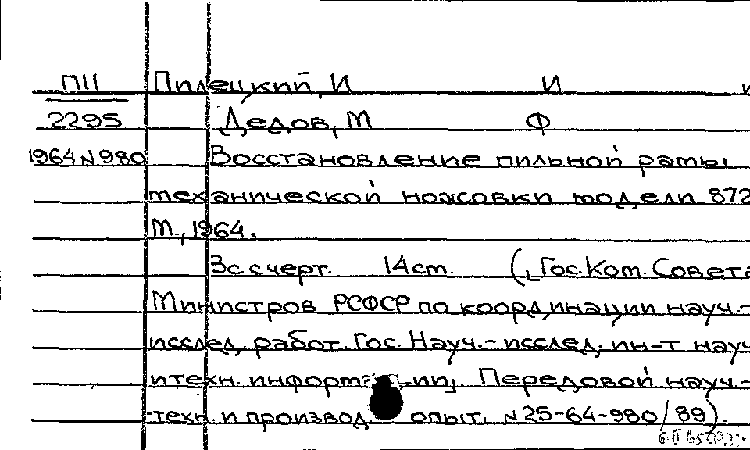 П11 Пилецкий, И И и
2295 Дедов, М Ф
1964 N 980 Восстановление пильной рамы
механической ножовки модели 872
М, 1964.
3с. с черт. 14см. (Гос. Ком. Совета
Министров РСФСР по координации науч.-
исслед. работ. Гос. Науч.-исслед. ин-т науч
и техн. информации, Передовой науч.-
техн. и производ. опыт. N 25-64-980/89).